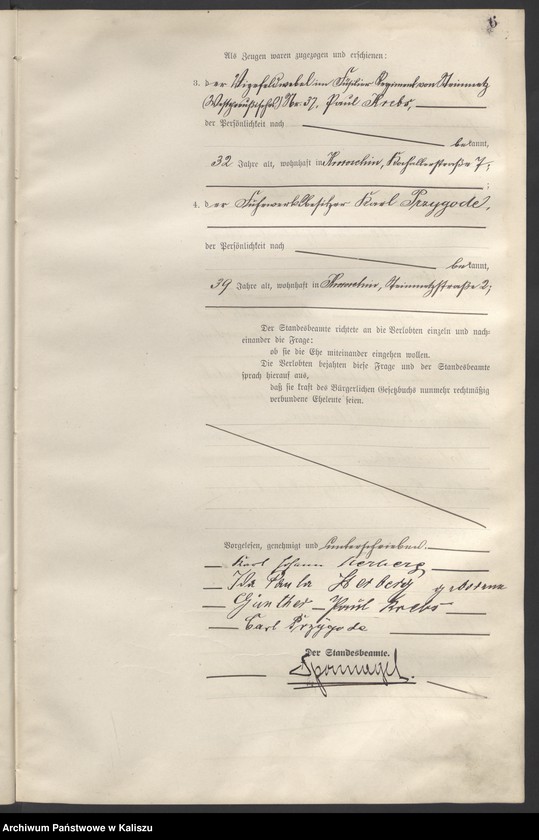 Als Zeugen waren zugezogen und erschienen:
3. der Vizefeldwebel im Füsilier Regiment von Steinmetz
(Westpreußisches) Nr. 37, Paul Krebs,
der Persönlichkeit nach
bekannt,
32 Jahre alt, wohnhaft in Krotoschin, 7;
4. der Fuhrwerksbesitzer Karl Przygode,
der Persönlichkeit nach
bekannt,
39 Jahre alt, wohnhaft in Krotoschin, Steinmetzstraße 2;
Der Standesbeamte richtete an die Verlobten einzeln und nach-
einander die Frage:
ob sie die Ehe miteinander eingehen wollen.
Die Verlobten bejahten diese Frage und der Standesbeamte
sprach hierauf aus,
daß sie kraft des Bürgerlichen Gesetzbuchs nunmehr rechtmäßig
verbundene Eheleute seien.
Vorgelesen, genehmigt und unterschrieben.
Karl Johann Herberg
Ida Paula Herberg
Günther Paul Krebs
Carl Przygode
Der Standesbeamte.
Archiwum Państwowe w Kaliszu